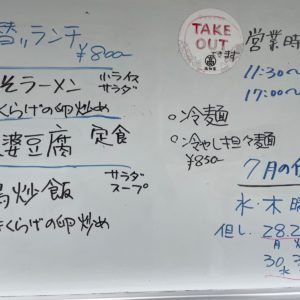 替ランチ ¥800-
そラーメン 小ライス サラダ
くらげの卵炒め
婆豆腐 定食
炒飯 サラダ スープ
くらげの卵炒め
TAKE OUT
できます
営業時
11:30〜
17:00〜
○冷麺
○冷やし担々麺
¥850-
7月の
水・木
但し、28.2
月
30.3
水